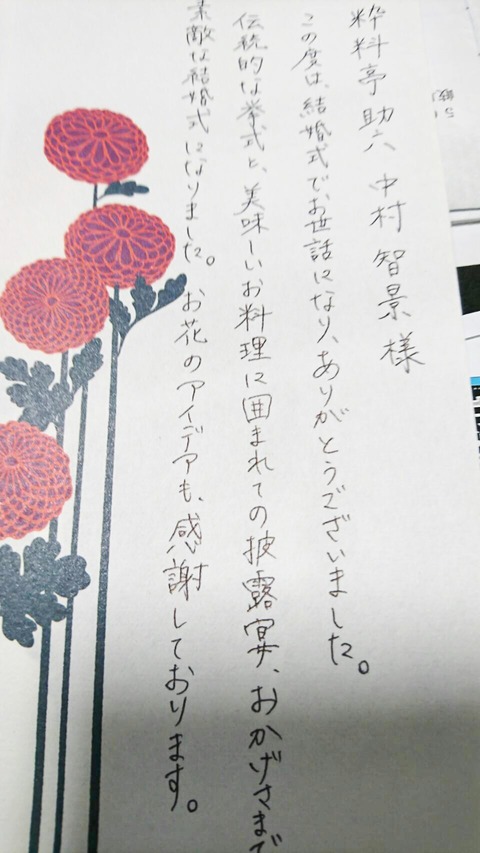 粋料亭 助六 中村 智景 様
この度は、結婚式でお世話になり、ありがとうございました。
伝統的な挙式と、美味しいお料理に囲まれての披露宴、おかげさまで
素敵な結婚式になりました。お花のアイデアも、感謝しております。